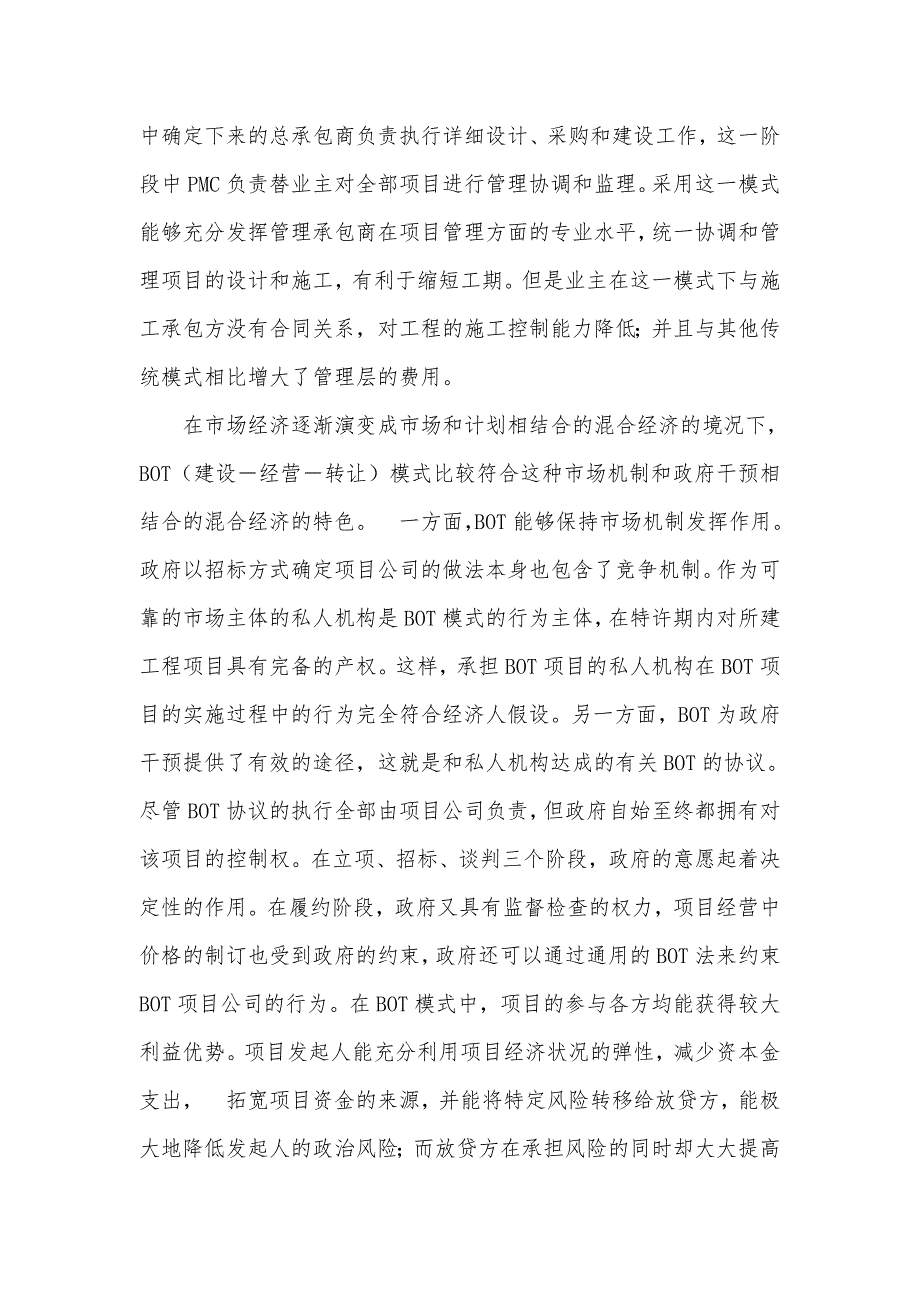 中确定下来的总承包商负责执行详细设计、采购和建设工作，这一阶
段中 PMC 负责替业主对全部项目进行管理协调和监理。采用这一模式
能够充分发挥管理承包商在项目管理方面的专业水平，统一协调和管
理项目的设计和施工，有利于缩短工期。但是业主在这一模式下与施
工承包方没有合同关系，对工程的施工控制能力降低；并且与其他传
统模式相比增大了管理层的费用。
在市场经济逐渐演变成市场和计划相结合的混合经济的境况下，
BOT（建设－经营－转让）模式比较符合这种市场机制和政府干预相
结合的混合经济的特色。　一方面，BOT 能够保持市场机制发挥作用。
政府以招标方式确定项目公司的做法本身也包含了竞争机制。作为可
靠的市场主体的私人机构是 BOT 模式的行为主体，在特许期内对所建
工程项目具有完备的产权。这样，承担 BOT 项目的私人机构在 BOT 项
目的实施过程中的行为完全符合经济人假设。另一方面，BOT 为政府
干预提供了有效的途径，这就是和私人机构达成的有关 BOT 的协议。
尽管 BOT 协议的执行全部由项目公司负责，但政府自始至终都拥有对
该项目的控制权。在立项、招标、谈判三个阶段，政府的意愿起着决
定性的作用。在履约阶段，政府又具有监督检查的权力，项目经营中
价格的制订也受到政府的约束，政府还可以通过通用的 BOT 法来约束
BOT 项目公司的行为。在 BOT 模式中，项目的参与各方均能获得较大
利益优势。项目发起人能充分利用项目经济状况的弹性，减少资本金
支出，　拓宽项目资金的来源，并能将特定风险转移给放贷方，能极
大地降低发起人的政治风险；而放贷方在承担风险的同时却大大提高